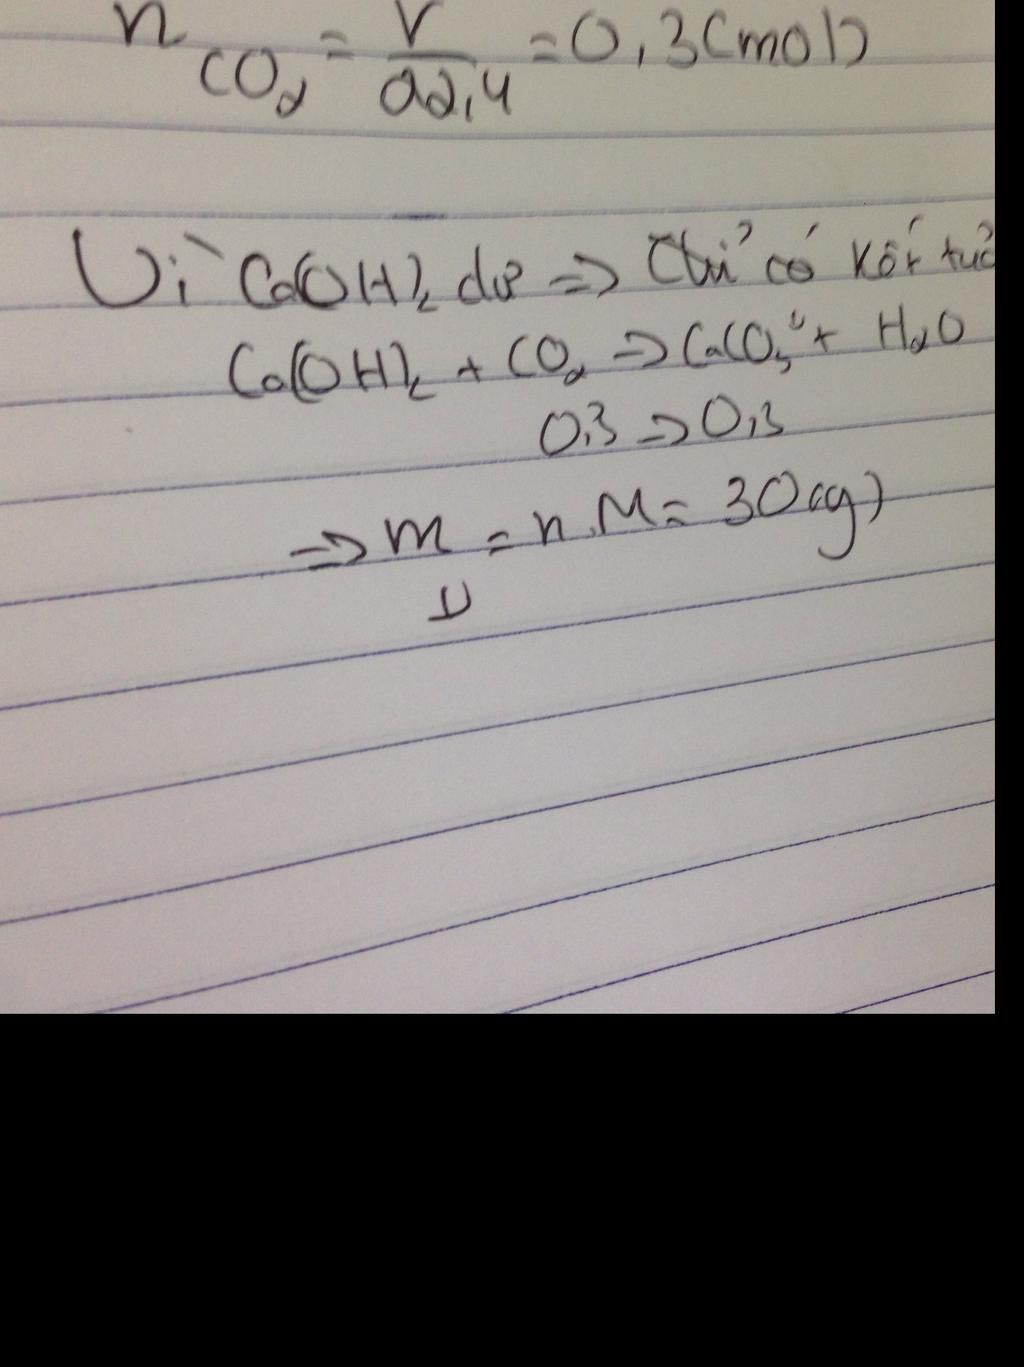 n CO2 = V / 22,4 = 0,3(mol)
Vì Ca(OH)2 dư => Chỉ có kết tủa
Ca(OH)2 + CO2 => CaCO3↓ + H2O
0,3 => 0,3
=> m↓ = n.M = 30(g)